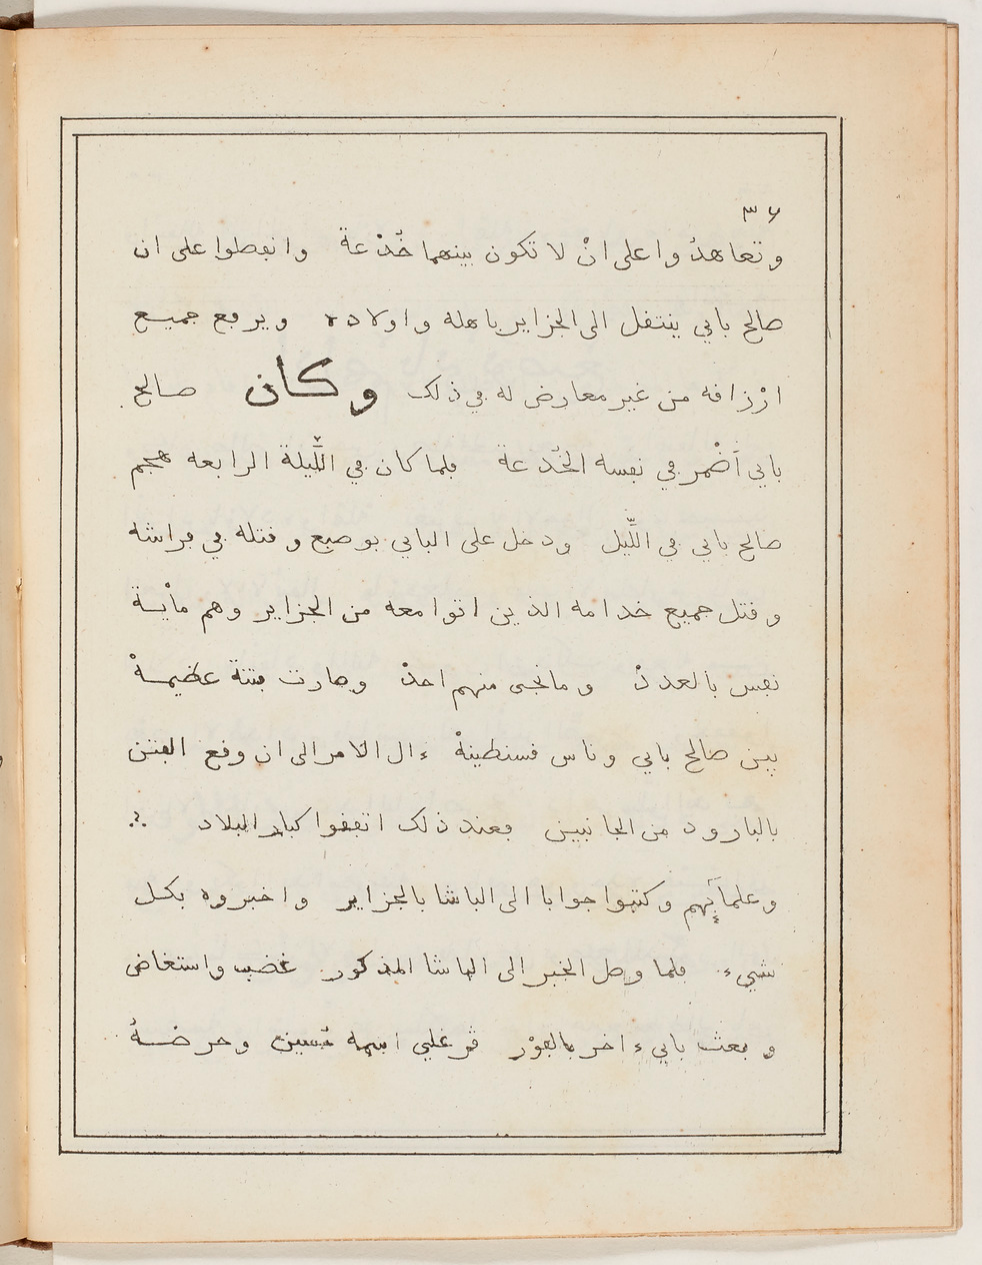 ٣٦
وتعاهدُوا على انْ لا تكون بينهما خُدْعة وانفصلوا على ان
صالح باي ينتقل الى الجزاير باهله واولاده ويرفع جميع
ارْزاقه من غير معارض له في ذلك وكان صالح
باي أضْمر في نفسه الخُدعة فلما كان في اللَّيلة الرابعه هجم
صالح باي في اللَّيل ودخل على الباي بوصبع وقتله في فراشه
وقتل جميع خدامه الذين اتوا معه من الجزاير وهم مأية
نفس بالعددْ وما نجى منهم احدْ وصارت فتنة عظيمةْ
بين صالح باي وناس قسنطينةْ ءال الامر الى ان وقع الفتن
بالبارود من الجانبين فعند ذلك اتفقوا كبار البلاد
وعلمآئِهم وكتبوا جوابا الى الباشا بالجزاير واخبروه بكل
شيء فلما وصل الخبر الى الباشا المذكور غضب واستغاض
وبعث باي ءاخر بالفوْر قرغلي اسمه حسين وحرضهُ